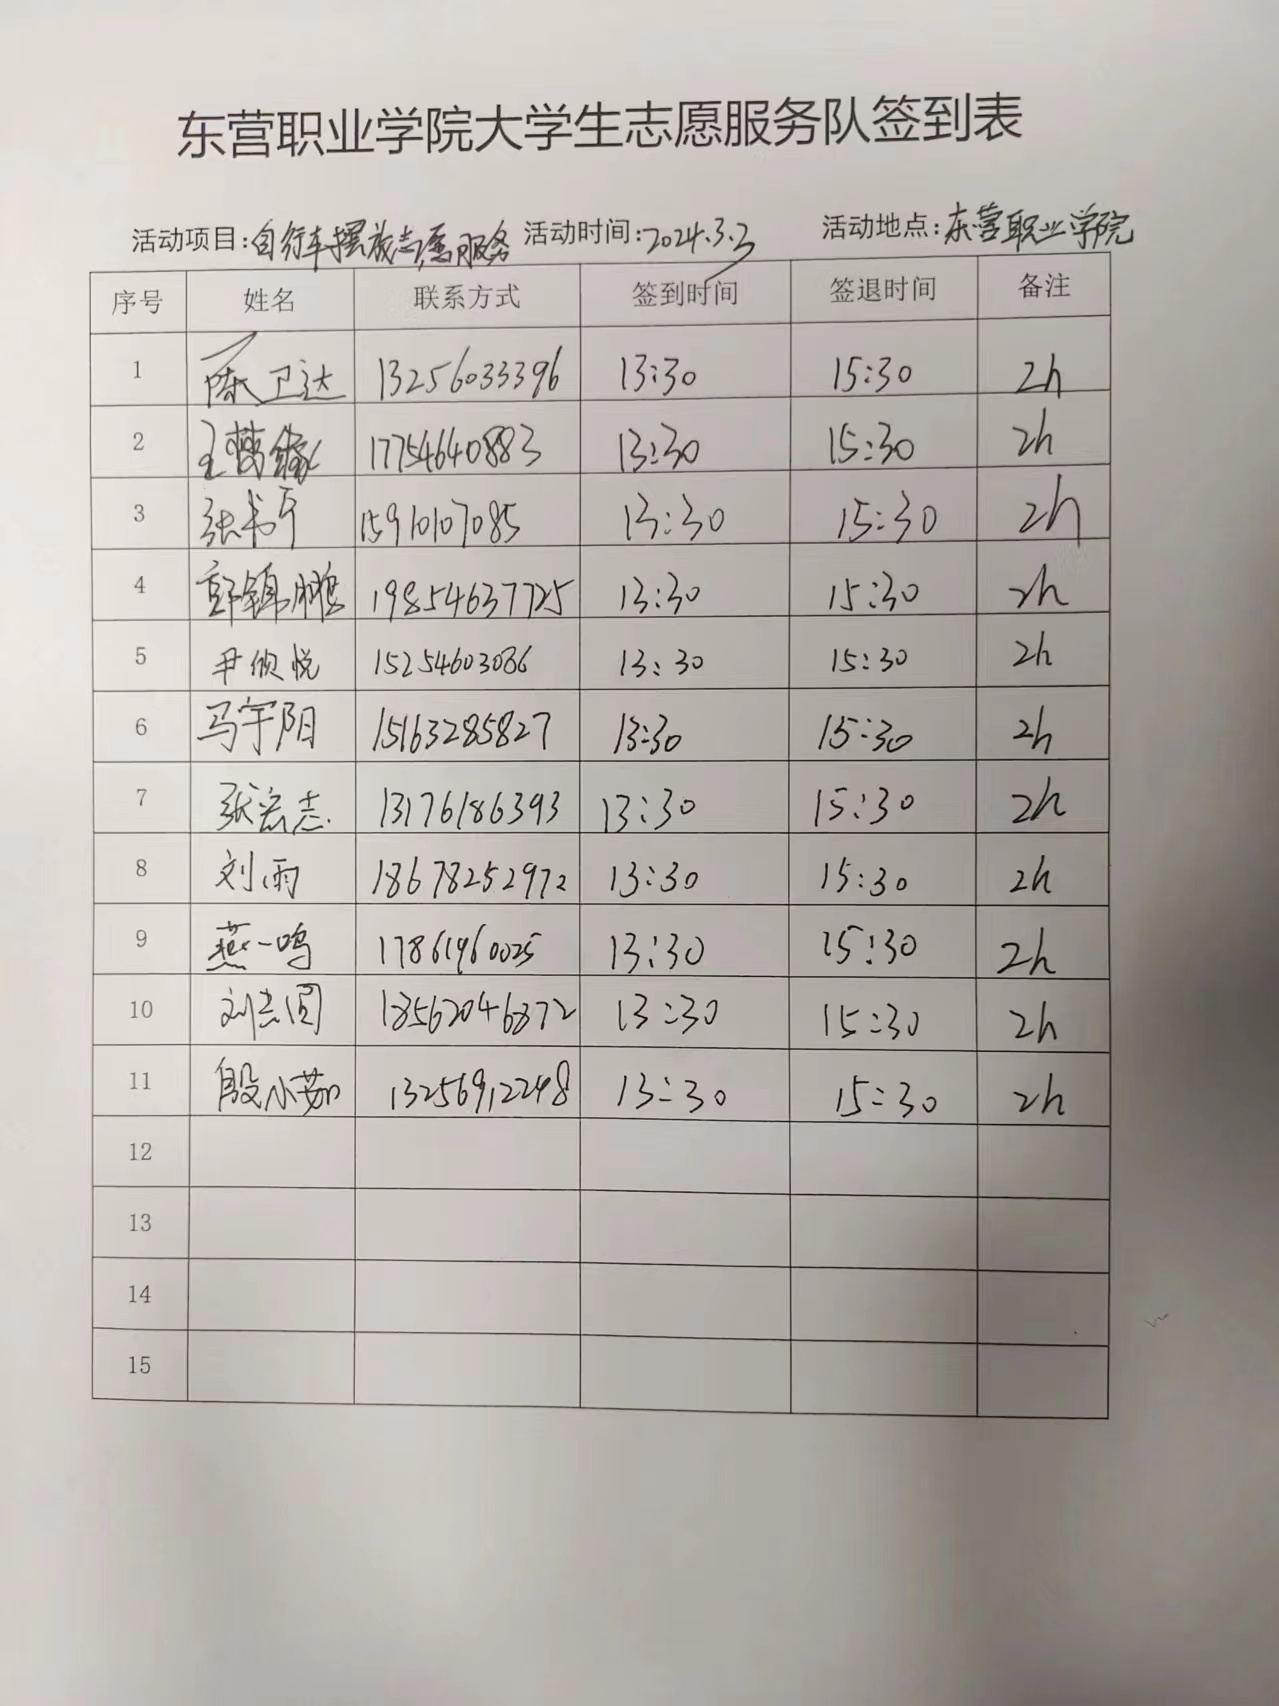 东营职业学院大学生志愿服务队签到表
活动项目:自行车摆放志愿服务 活动时间:2024.3.3 活动地点:东营职业学院
序号 姓名 联系方式 签到时间 签退时间 备注
1 陈卫达 13256033396 13:30 15:30 2h
2 王 17754640883 13:30 15:30 2h
3 张书宁 15910107085 13:30 15:30 2h
4 郭锦鹏 19854637725 13:30 15:30 2h
5 尹欣悦 15254603086 13:30 15:30 2h
6 马宇阳 15163285827 13:30 15:30 2h
7 张宏志 13176186393 13:30 15:30 2h
8 刘雨 18678252972 13:30 15:30 2h
9 燕一鸣 17861960025 13:30 15:30 2h
10 刘志国 18562046872 13:30 15:30 2h
11 殷小茹 13256912248 13:30 15:30 2h
12
13
14
15